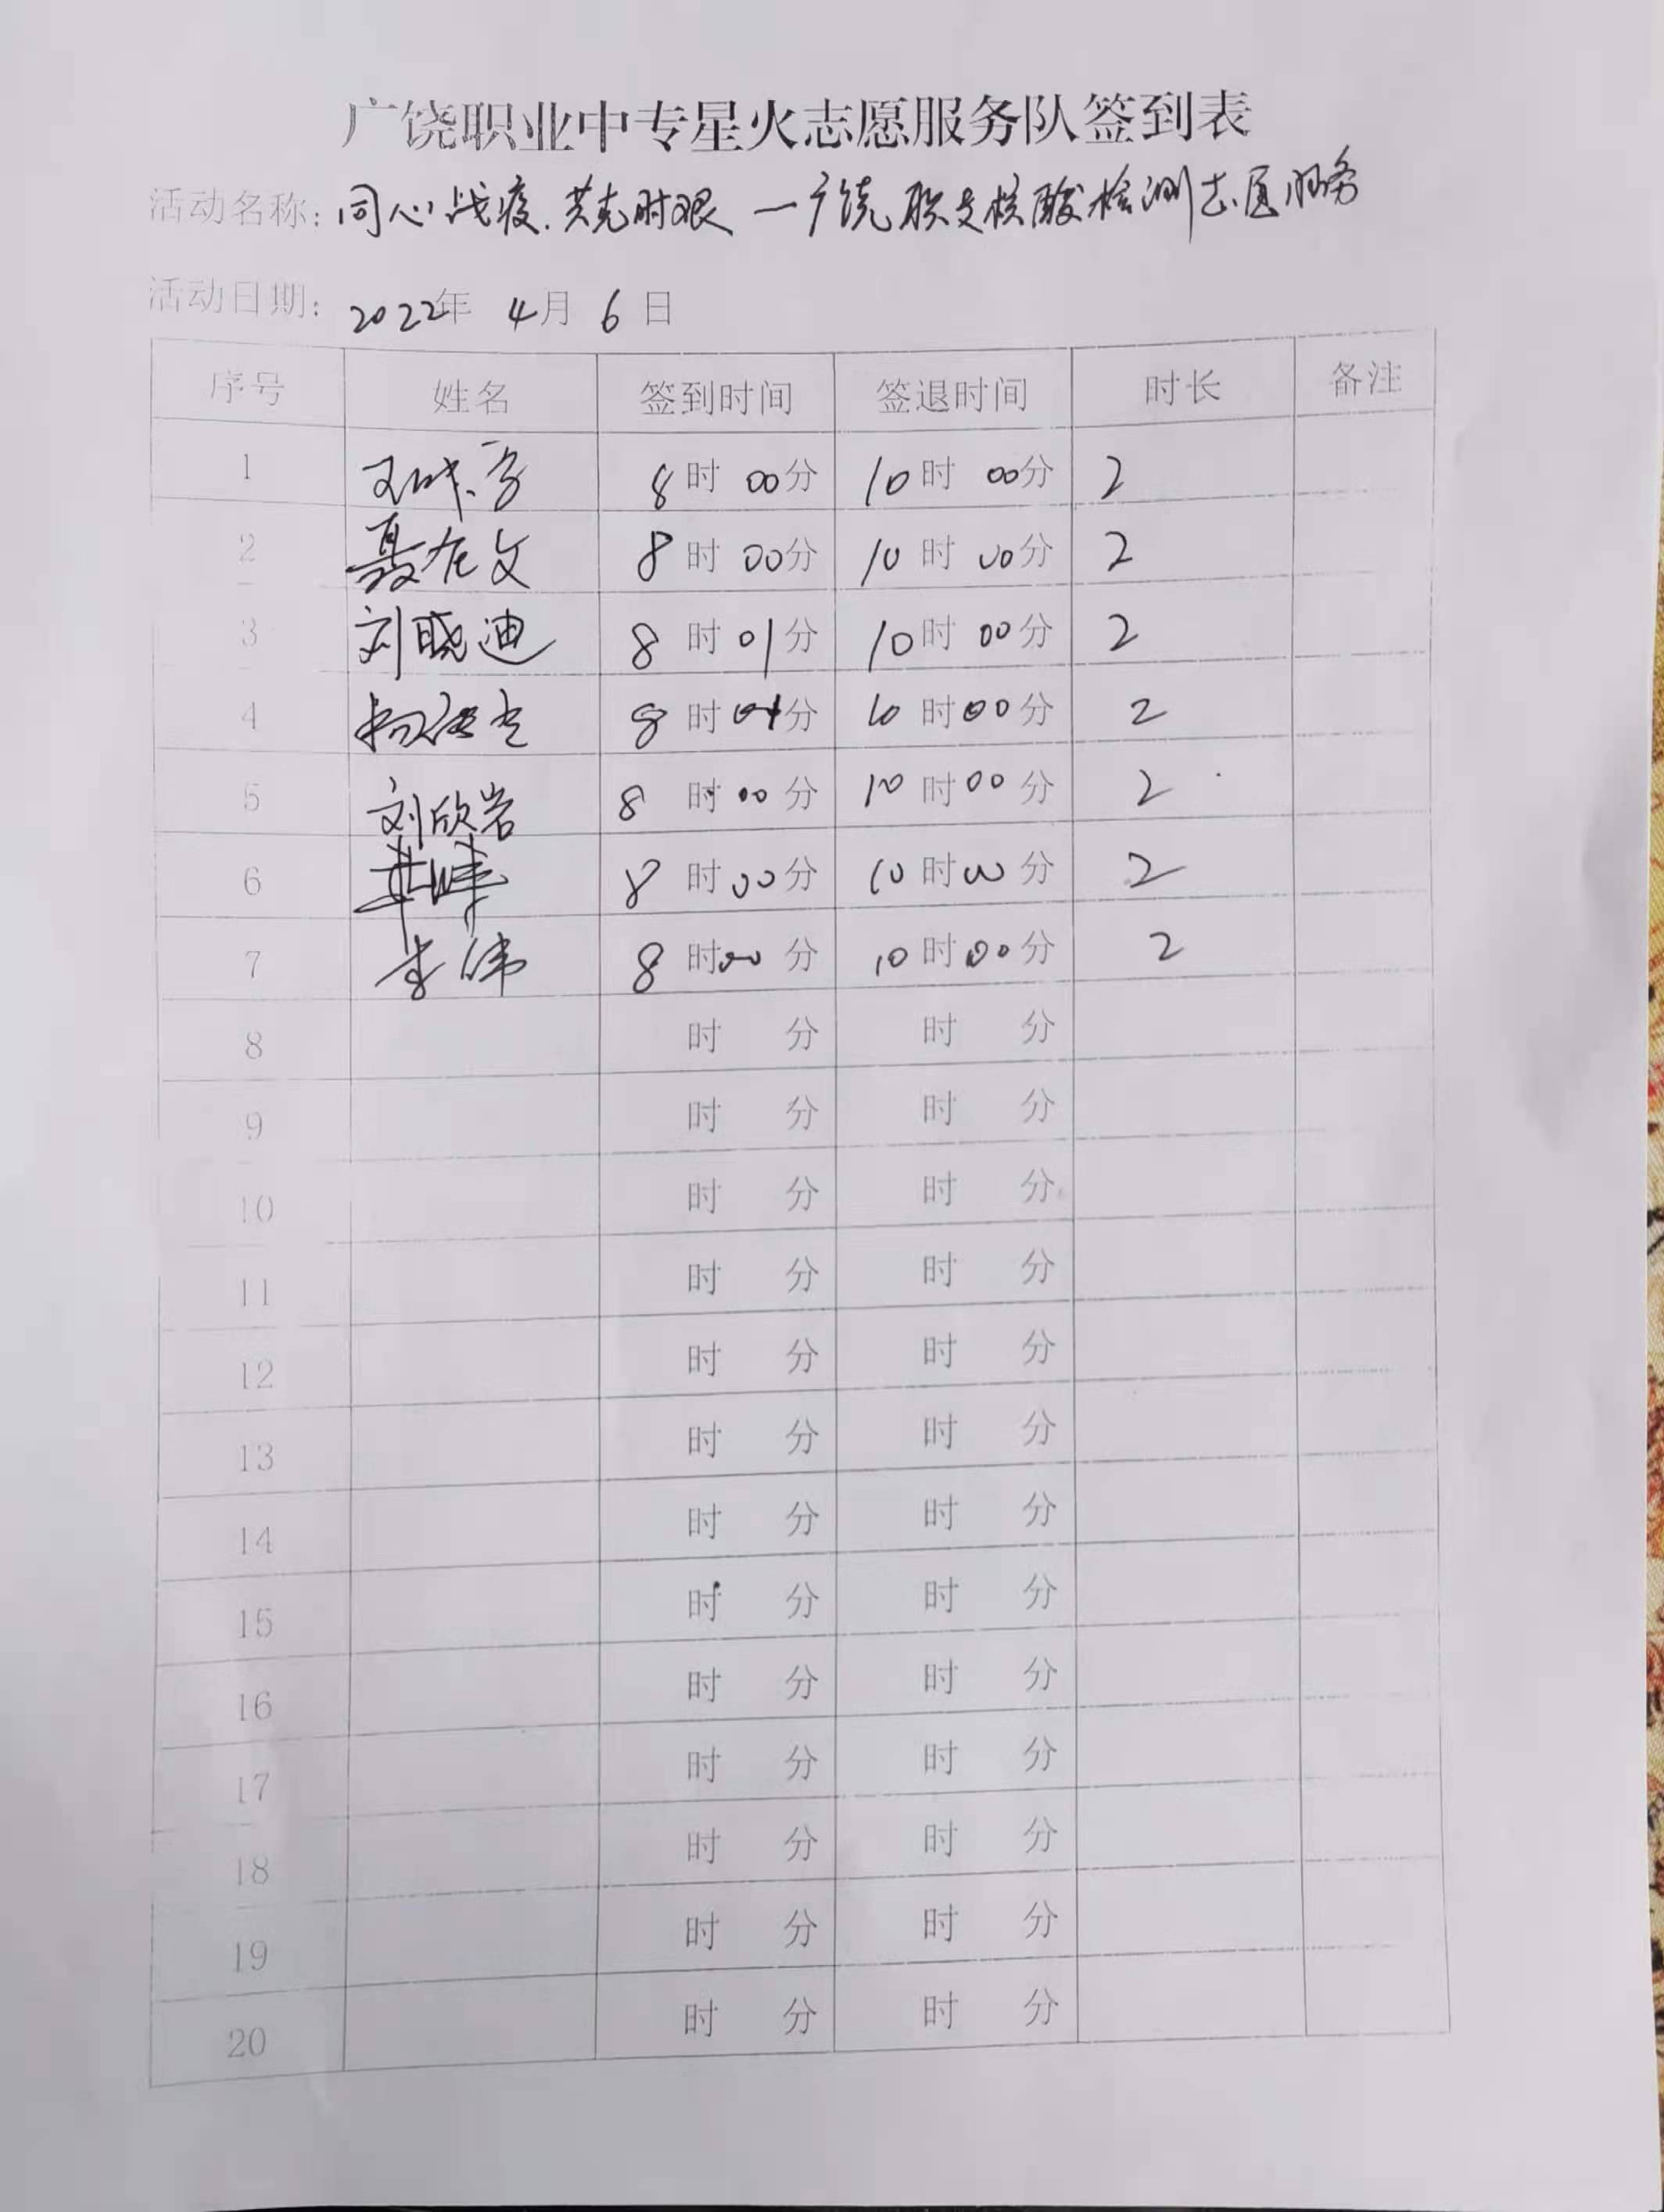 广饶职业中专星火志愿服务队签到表
活动名称：同心战疫.共克时艰 一广饶职专核酸检测志愿服务
活动日期：2022年 4月 6日
序号 姓名 签到时间 签退时间 时长 备注
1 8时00分 10时00分 2
2 聂在文 8时00分 10时00分 2
3 刘晓迪 8时01分 10时00分 2
4 8时 分 10时00分 2
5 刘欣岩 8时00分 10时00分 2
6 8时00分 10时00分 2
7 李伟 8时00分 10时00分 2
8 时 分 时 分
9 时 分 时 分
10 时 分 时 分
11 时 分 时 分
12 时 分 时 分
13 时 分 时 分
14 时 分 时 分
15 时 分 时 分
16 时 分 时 分
17 时 分 时 分
18 时 分 时 分
19 时 分 时 分
20 时 分 时 分